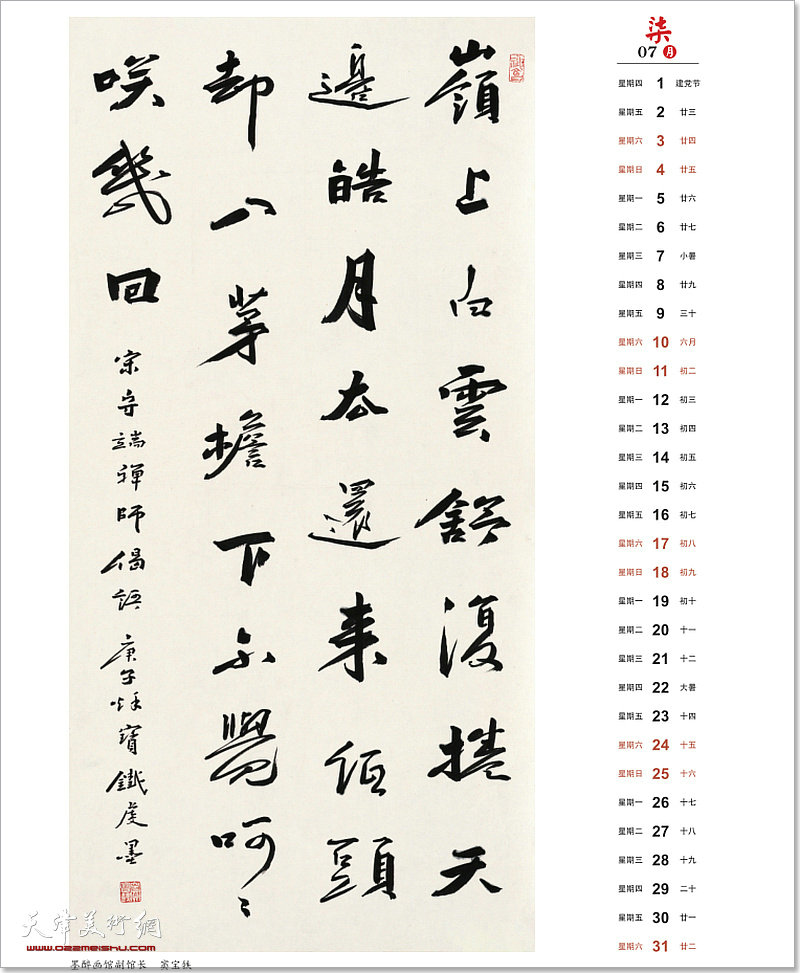 嶺上白雲舒復捲天
邊皓月去還来低頭
却入茅檐下不覺呵々
咲幾回
宋守端禪師偈語 庚子秌寶鐵虔墨
柒
07 月
星期四 1 建党节
星期五 2 廿三
星期六 3 廿四
星期日 4 廿五
星期一 5 廿六
星期二 6 廿七
星期三 7 小暑
星期四 8 廿九
星期五 9 三十
星期六 10 六月
星期日 11 初二
星期一 12 初三
星期二 13 初四
星期三 14 初五
星期四 15 初六
星期五 16 初七
星期六 17 初八
星期日 18 初九
星期一 19 初十
星期二 20 十一
星期三 21 十二
星期四 22 大暑
星期五 23 十四
星期六 24 十五
星期日 25 十六
星期一 26 十七
星期二 27 十八
星期三 28 十九
星期四 29 二十
星期五 30 廿一
星期六 31 廿二
天津美術網
www.022meishu.com
墨醉画馆副馆长 窦宝铁